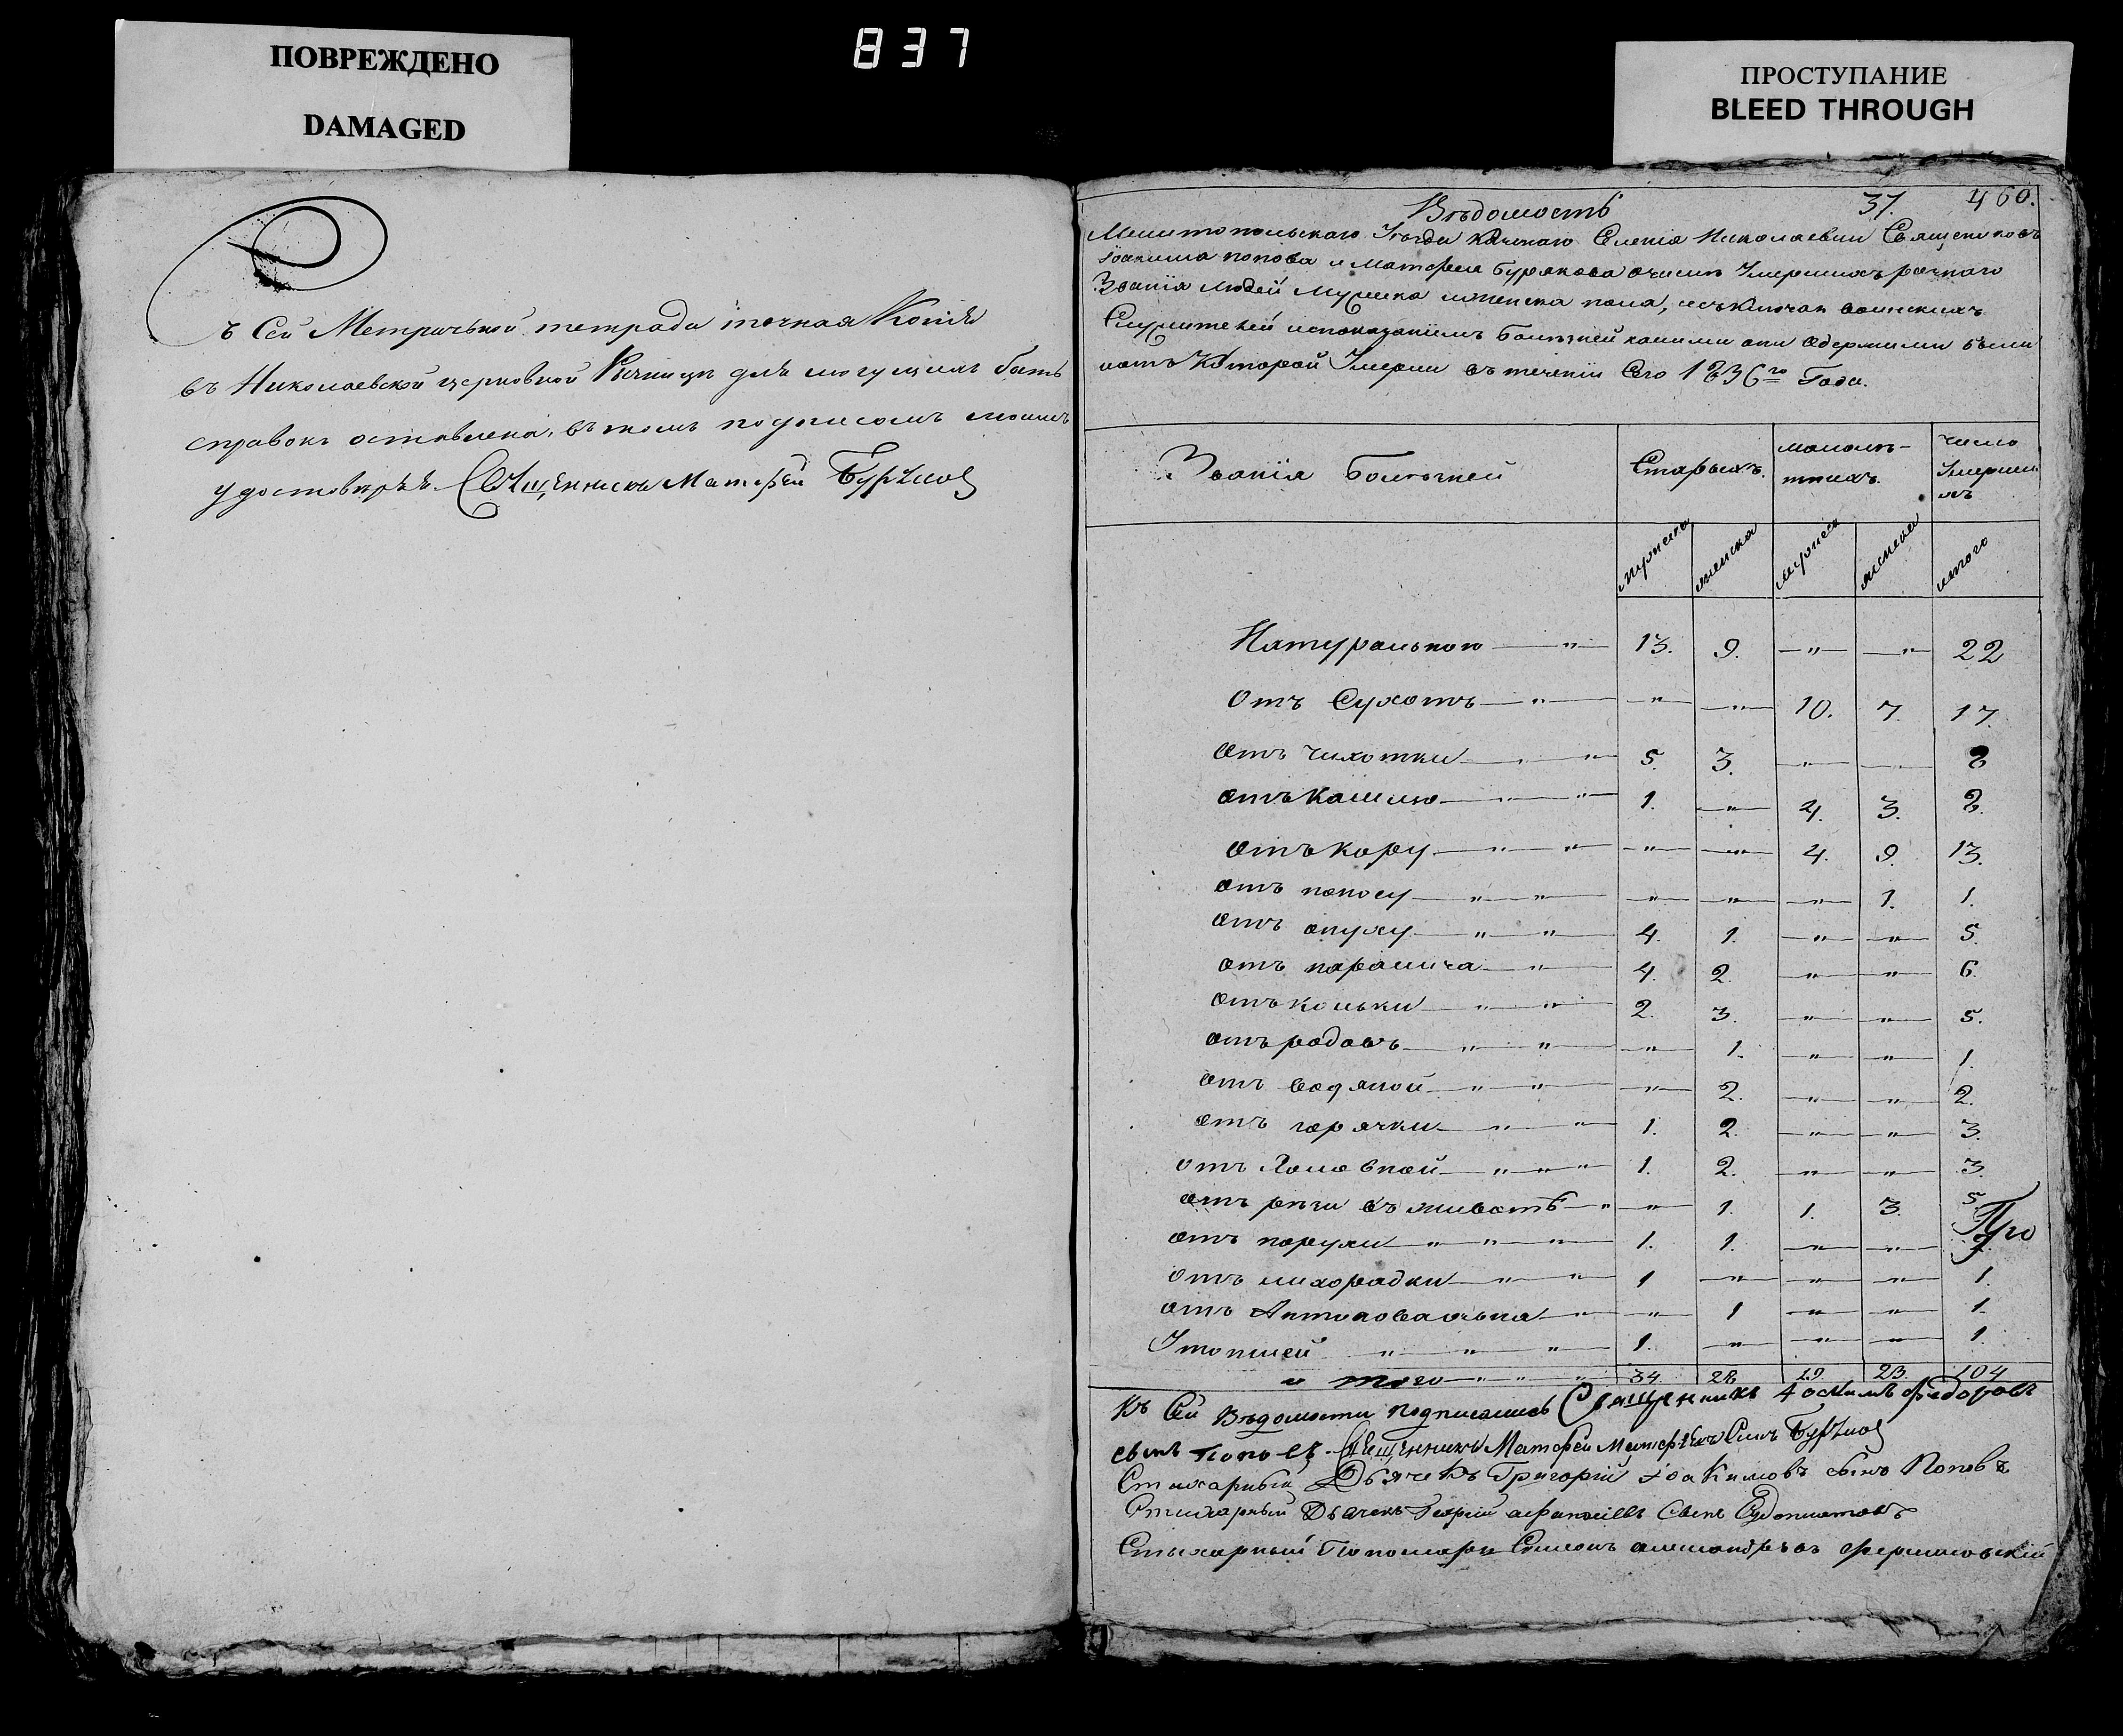 ПОВРЕЖДЕНО
DAMAGED
837
ПРОСТУПАНИЕ
BLEED THROUGH
Съ Сей Метричьной тетради точная Копія
въ Николаевской церковной Ризницѣ для могущихъ бать
справокъ оставлена, въ томъ подписомъ моимъ
удостовѣряя Священникъ Матфей Буряковъ
37. 460.
Вѣдомость
Мелитопольскаго Уѣзда Селенія Николаевки Священиковъ
Іоакима попова и Матфея Бурякова очислѣ Умершихъ рознаго
Званія людей Мужеска иженска пола, исъключая воинскихъ
Служителей испоказаніемъ Болѣзней какими они Одержими были
иотъ Которой Умерли въ теченіи Сего 1836го Года.
Званія Болѣзней
Старыхъ
малолѣ-
тнихъ
Число
Умерши
хъ
мужеска женска мужеска женска итого
Натуральною 13. 9. — " — — " — 22
Отъ Сухотъ " — " — — " — 10. 7. 17.
отъ чихотки " 5. 3. — " — — " — 8
отъ Кашлю " " 1. — " — 4. 3. 8.
отъ кору " " — " — — " — 4. 9. 13.
отъ поносу " " — " — — " — — " — 1. 1.
отъ опуху " " 4. 1. — " — — " — 5.
отъ паралича " 4. 2. — " — — " — 6.
отъ кольки " " 2. 3. — " — — " — 5.
отъ родовъ " " — " — 1. — " — — " — 1.
отъ водяной " " — " — 2. — " — — " — 2.
отъ горячки " " 1. 2. — " — — " — 3.
отъ Головной " " " 1. 2. — " — — " — 3.
отъ рѣзи въ животѣ " — " — 1. 1. 3. 5.
отъ порухи " " " 1. 1. — " — — " — 2.
отъ лихорадки " " 1 — " — — " — — " — 1.
отъ Антоноваогъна " — " — 1 — " — — " — 1.
Утопшей " " " 1. — " — — " — — " — 1.
и того " " " 34 28 19 23. 104
Къ Сей Вѣдомости подписались Священникъ Іоакимъ Федоровъ
сынъ Поповъ. Священникъ Матфей Матфѣевъ Сынъ Буряковъ
Стихарный Дьячекъ Григорій Іоакимовъ сынъ Поповъ
Стихарный Дьячекъ Сынъ
Стыхарный Пономарь Симеонъ